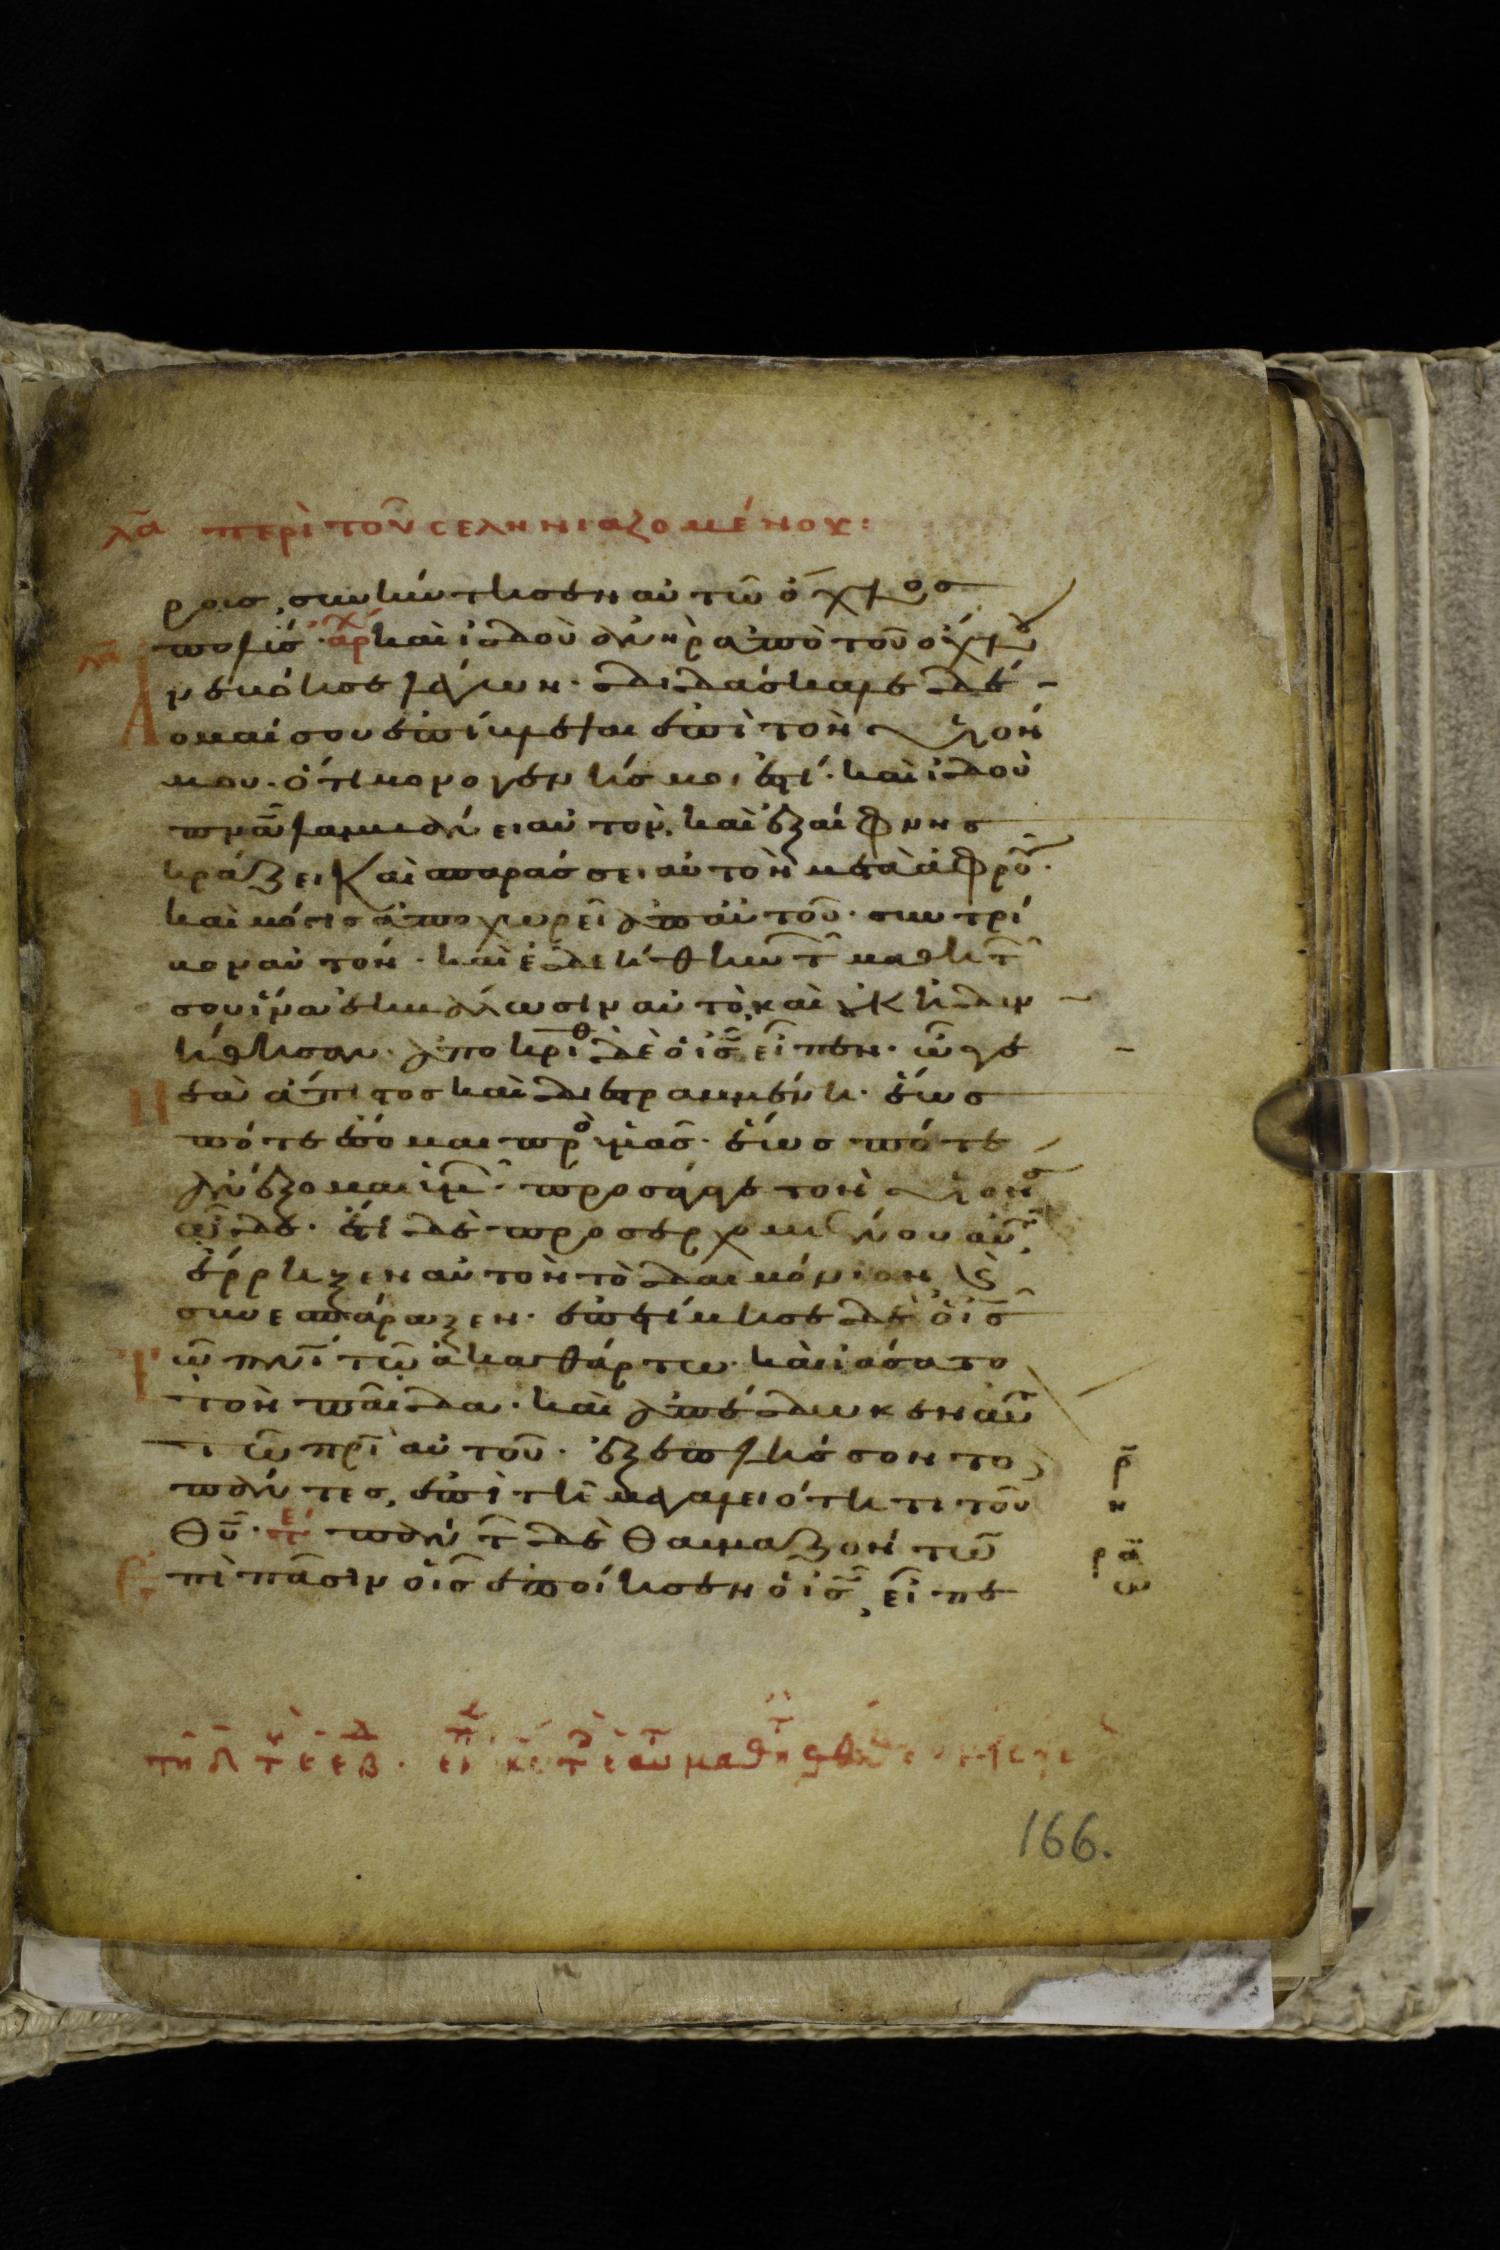 λα περὶ τοῦ σεληνιαζομένου:
ρους, συνήντησεν αὐτῶ ὄχλος
πολύς· ἀρχ καὶ ἰδοὺ ἀνὴρ ἀπὸ τοῦ ὄχλου
νεβόησε λέγων· διδάσκαλε δέ
ομαί σου ἐπίβλεψαι ἐπὶ τὸν υἱόν
μου· ὅτι μονογενής μοι ἐστί· καὶ ἰδοὺ
πνα λαμβάνει αὐτόν, καὶ ἐξαίφνης
κράζει καὶ σπαράσσει αὐτὸν μετὰ ἀφροῦ·
καὶ μόγις ἀποχωρεῖ ἀπ αὐτοῦ· συντρί
βον αὐτόν· καὶ ἐδεήθην τ μαθητ
σου ἵνα ἐκβάλωσιν αὐτὸ, καὶ οὐκ ἠδυν
ήθησαν· ἀποκριθ δὲ ὁ ις εἶπεν· ὦ γε
εὰ ἄπιστος καὶ διεστραμμένη· ἕως
πότε ἔσομαι πρὸ ὑμᾶς· ἕως πότε
ἀνέξομαι ὑμ· προσάγαγε τὸν υἱόν σ
ὧδε· ἔτι δὲ προσερχομένου αὐτ,
ἔρρηξεν αὐτὸν τὸ δαιμόνιον κ
συνεσπάραξεν· ἐπετίμησε δὲ ὁ ις
ῶ πνι τῶ ἀκαθάρτω· καὶ ἰάσατο
τὸν παῖδα· καὶ ἀπέδωκεν αὐ
τ ῶ πρι αὐτοῦ· ἐξεπλήσσοντο
πάντες, ἐπὶ τῆ μεγαλειότητι τοῦ
θυ· τε πάντ δὲ θαυμαζόντω
πὶ πᾶσιν οἷς ἐποίησεν ὁ ις, εἶπε
ρ
η
ρα
ω
166.